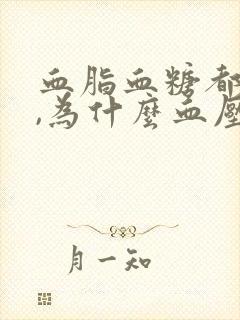 血脂血糖都
,為什麼血壓
月一知